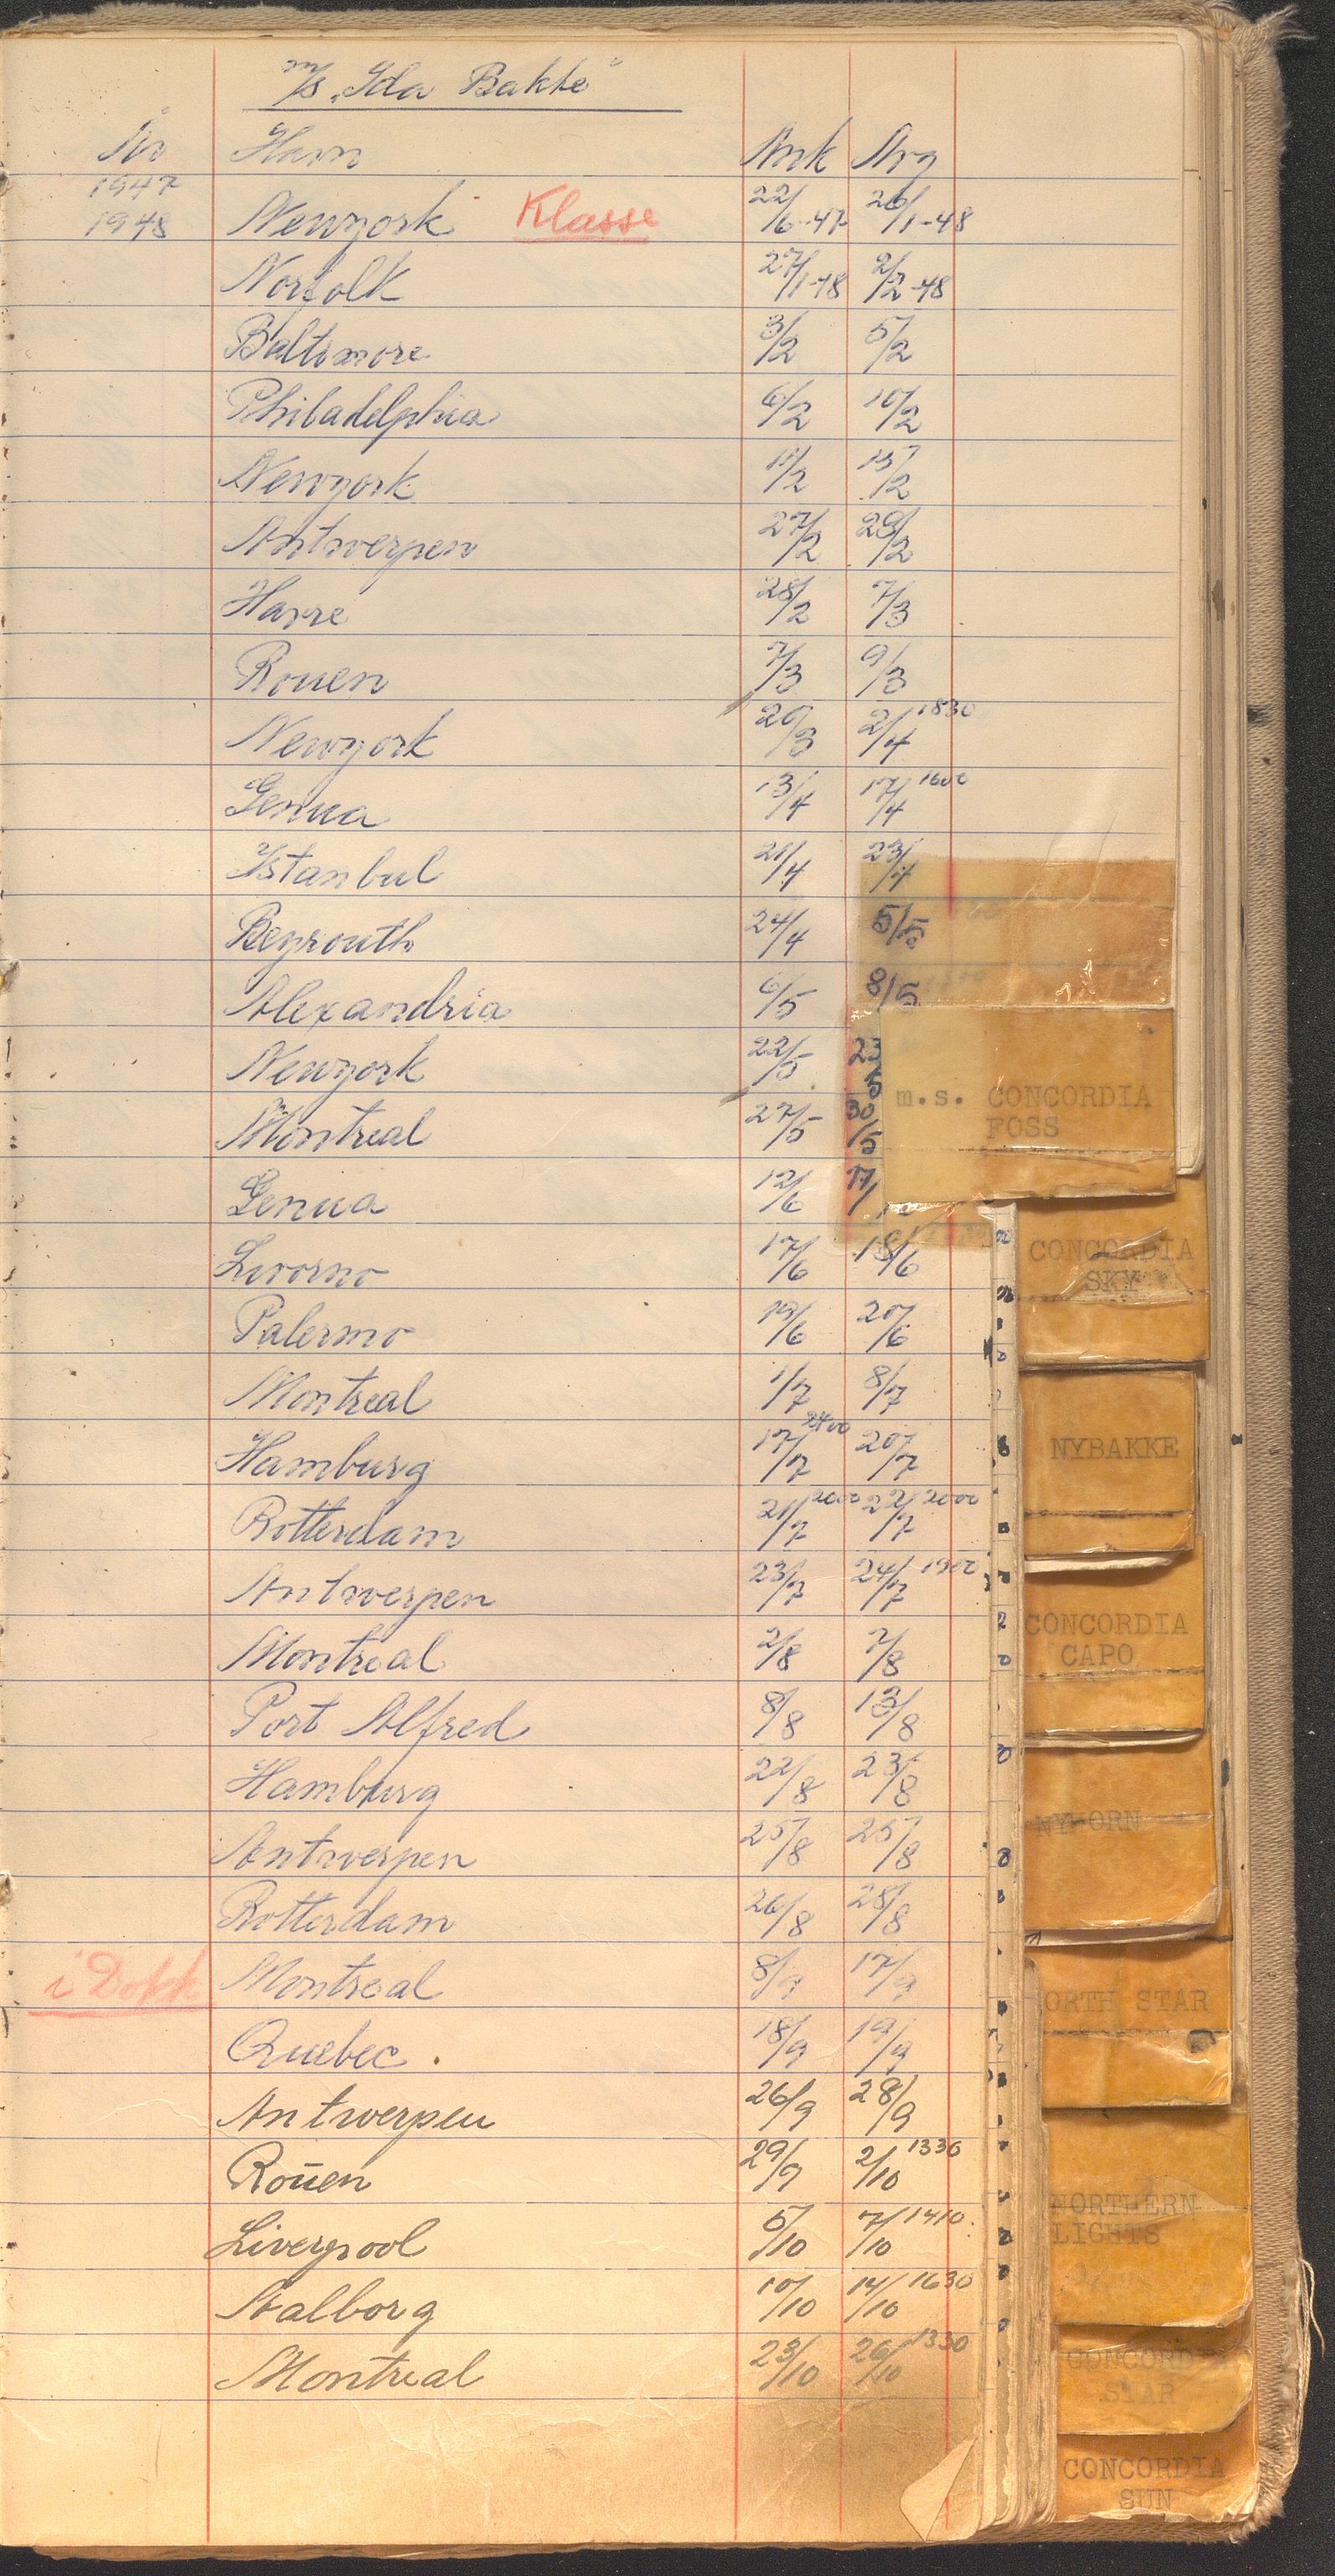 m/s "Ida Bakke"
År Havn Ank Avg
1947
1948 Newyork Klasse 22/6-47 26/1-48
Norfolk 27/1-48 2/2-48
Baltimore 3/2 5/2
Philadelphia 6/2 10/2
Newyork 11/2 15/2
Antwerpen 27/2 28/2
Havre 28/2 7/3
Rouen 7/3 9/3
Newyork 20/3 2/4 1830
Genua 13/4 17/4 1600
Istanbul 21/4 23/4
Beyrouth 24/4 5/5
Alexandria 6/5 8/5
Newyork 22/5 23/5
Montreal 27/5 30/5
Genua 12/6 17/
Livorno 17/6 18/6
Palermo 19/6 20/6
Montreal 1/7 8/7
Hamburg 17/7 2400 20/7
Rotterdam 21/7 2000 22/7 2000
Antwerpen 23/7 24/7 1900
Montreal 2/8 7/8
Port Alfred 8/8 13/8
Hamburg 22/8 23/8
Antwerpen 25/8 25/8
Rotterdam 26/8 28/8
i Dokk Montreal 8/9 17/9
Quebec. 18/9 19/9
Antwerpen 26/9 28/9
Rouen 29/9 2/10 1330
Liverpool 5/10 7/10 1410
Aalborg 10/10 14/10 1630
Montreal 23/10 26/10 1330
m.s. CONCORDIA
FOSS
CONCORDIA
SKY
NYBAKKE
CONCORDIA
CAPO
NYHORN
ORTH STAR
NORTHERN
LIGHTS
CONCORDI
STAR
CONCORDIA
SUN